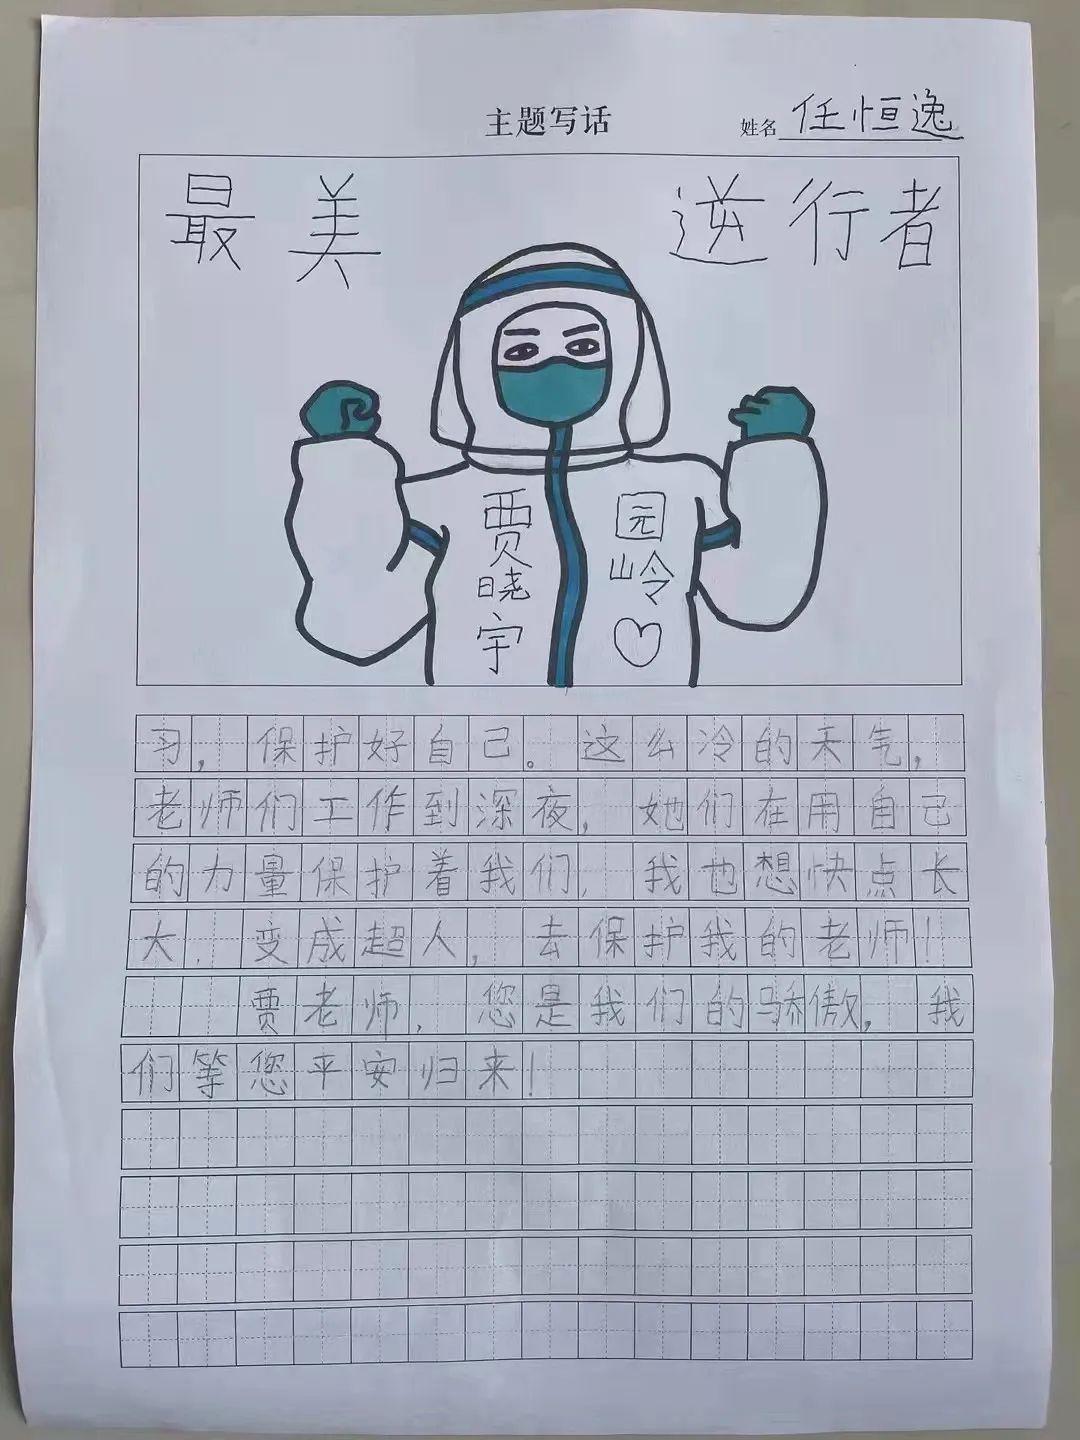 主题写话
姓名 任恒逸
最美 逆行者
贾晓宇
园岭
习，保护好自己。这么冷的天气，
老师们工作到深夜，她们在用自己
的力量保护着我们，我也想快点长
大，变成超人，去保护我的老师！
贾老师，您是我们的骄傲，我
们等您平安归来！